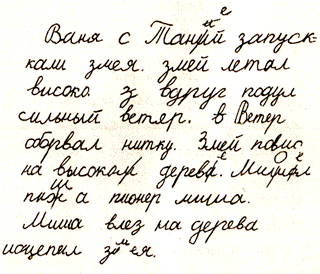 Ваня с Таней запуск-
кали змея. змей летал
високо з вдугуг подул
сильный ветяр. в Ветер
обрвал нитку. Змей повис
на высоком дерева.
пиж а пионер миша.
Миша влез на дерева
исцепил змея.